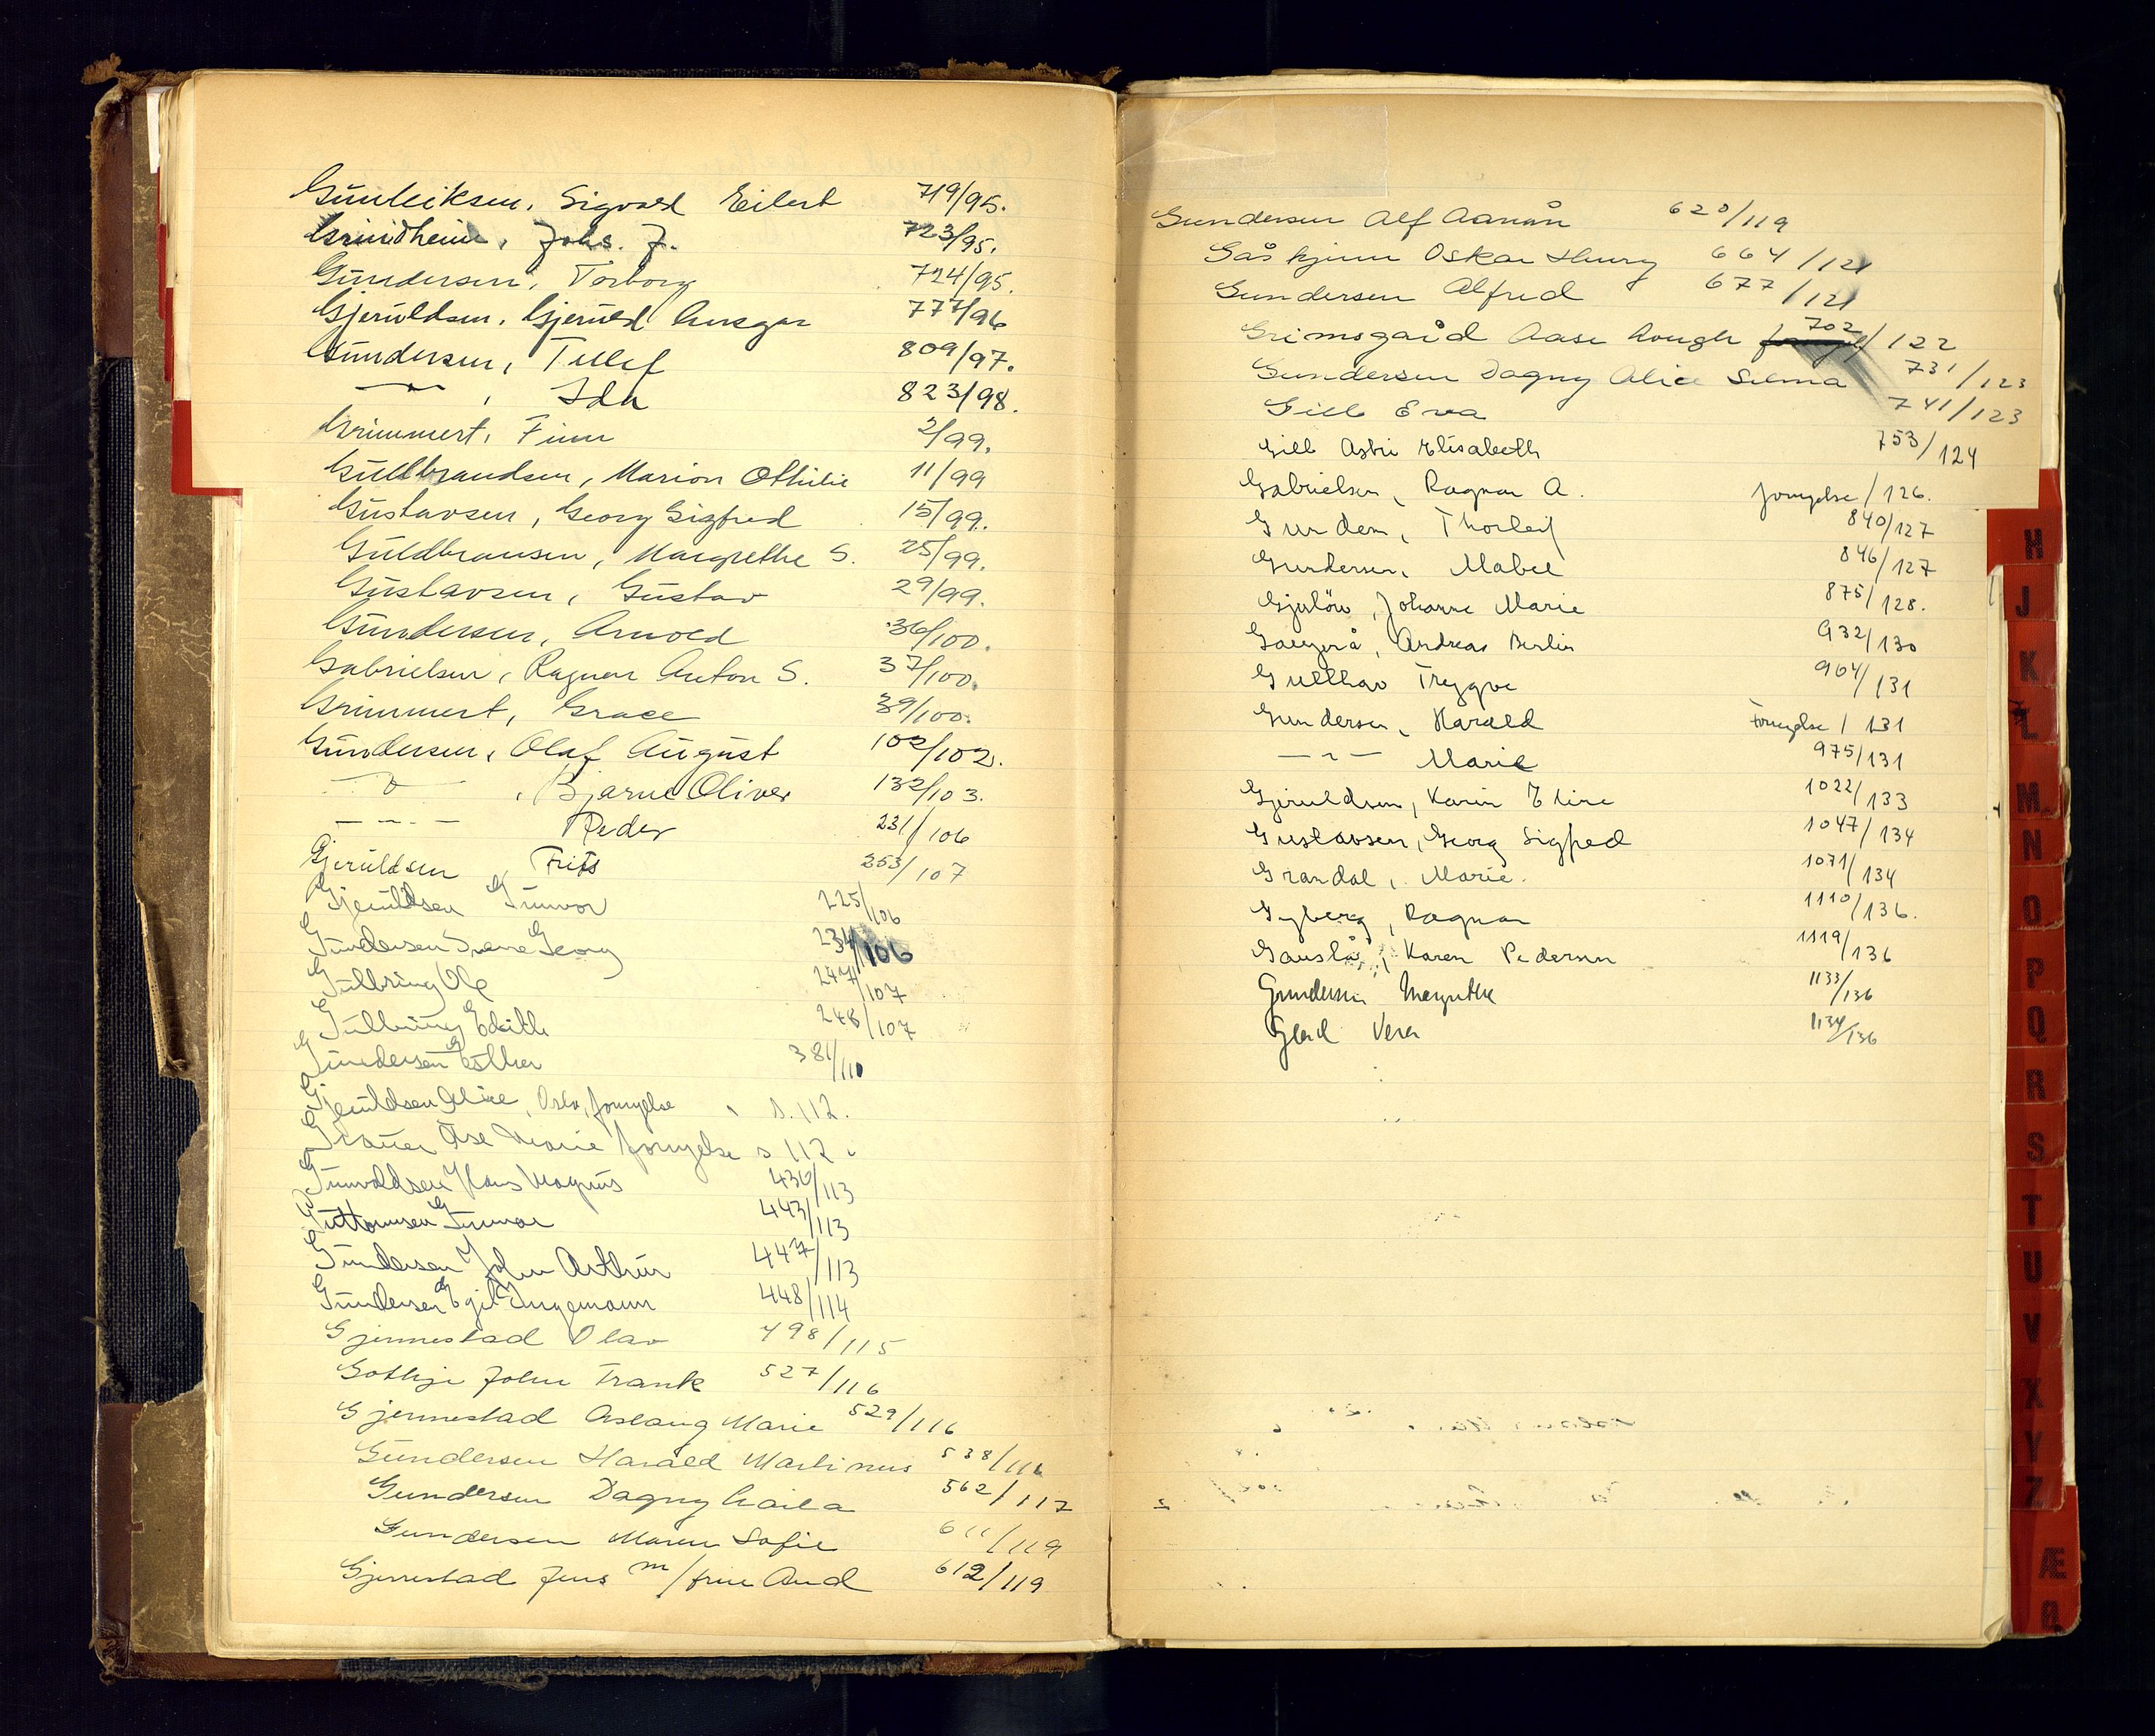 Gunleiksen, Sigvald Eilert 719/95.
Grindheim, Johs. F. 723/95.
Gundersen, Torborg 724/95.
Gjeruldsen, Gjeruld Ansgar 777/96
Gundersen, Tellef 809/97.
—"— , Ida 823/98.
Grimmert, Finn 2/99.
Guldbrandsen, Marion Othilie 11/99
Gustavsen, Georg Sigfred 15/99.
Guldbransen, Margrethe S. 25/99.
Gustavsen, Gustav 29/99.
Gundersen, Arnold 36/100.
Gabrielsen, Ragnar Anton S. 37/100.
Grimmert, Grace 39/100.
Gundersen, Olaf August 102/102.
—"— , Bjarne Oliver 132/103.
—"— Peder 231/106
Gjeruldsen, Frits 253/107
Gjeruldsen Gunvor 225/106
Gundersen Svane Georg 234/106
Gulbring Ole 247/107
Gulbring Edith 248/107
Gundersen Esther 381/110
Gjeruldsen Alice, Oslo, fornyelse s. 112.
Grauer Åse Marie fornyelse s 112.
Gunvaldsen Hans Magnus 430/113
Guttormsen Gunnar 443/113
Gundersen John Arthur 447/113
Gundersen Egil Ingemann 448/114
Gjennestad Olav 498/115
Gothje John Frank 527/116
Gjennestad Aslaug Marie 529/116
Gundersen Harald Martinus 538/116
Gundersen Dagny Laila 562/117
Gundersen Maren Sofie 611/119
Gjennestad Jens m/frue Aud 612/119
Gundersen Alf Aanon 620/119
Gåskjenn Oskar Henry 664/121
Gundersen Alfred 677/121
Grimsgaard Aase Lough 702/122
Gundersen Dagny Alice Selma 731/123
Gill Eva 741/123
Gill Astri Elisabeth 753/124
Gabrielsen, Ragnar A. fornyelse/126.
Gundem, Thorleif 840/127
Gundersen, Mabel 846/127
Gjerløw, Johanne Marie 875/128.
Andreas Berlin 932/130
Gullhav Trygve 964/131
Gundersen, Harald fornyelse/131
—"— Marie 975/131
Gjeruldsen, Karin Eline 1022/133
Gustavsen, Georg Sigfred 1047/134
Grandal, Marie. 1071/134
Gyberg, Ragnar 1110/136.
Gauslå, Karen Pedersen 1119/136
Gundersen Margrethe 1133/136
Glad Vera 1134/136
H
J
K
L
M
N
O
P
Q
R
S
T
U
V
X
Y
Z
Æ
Ø